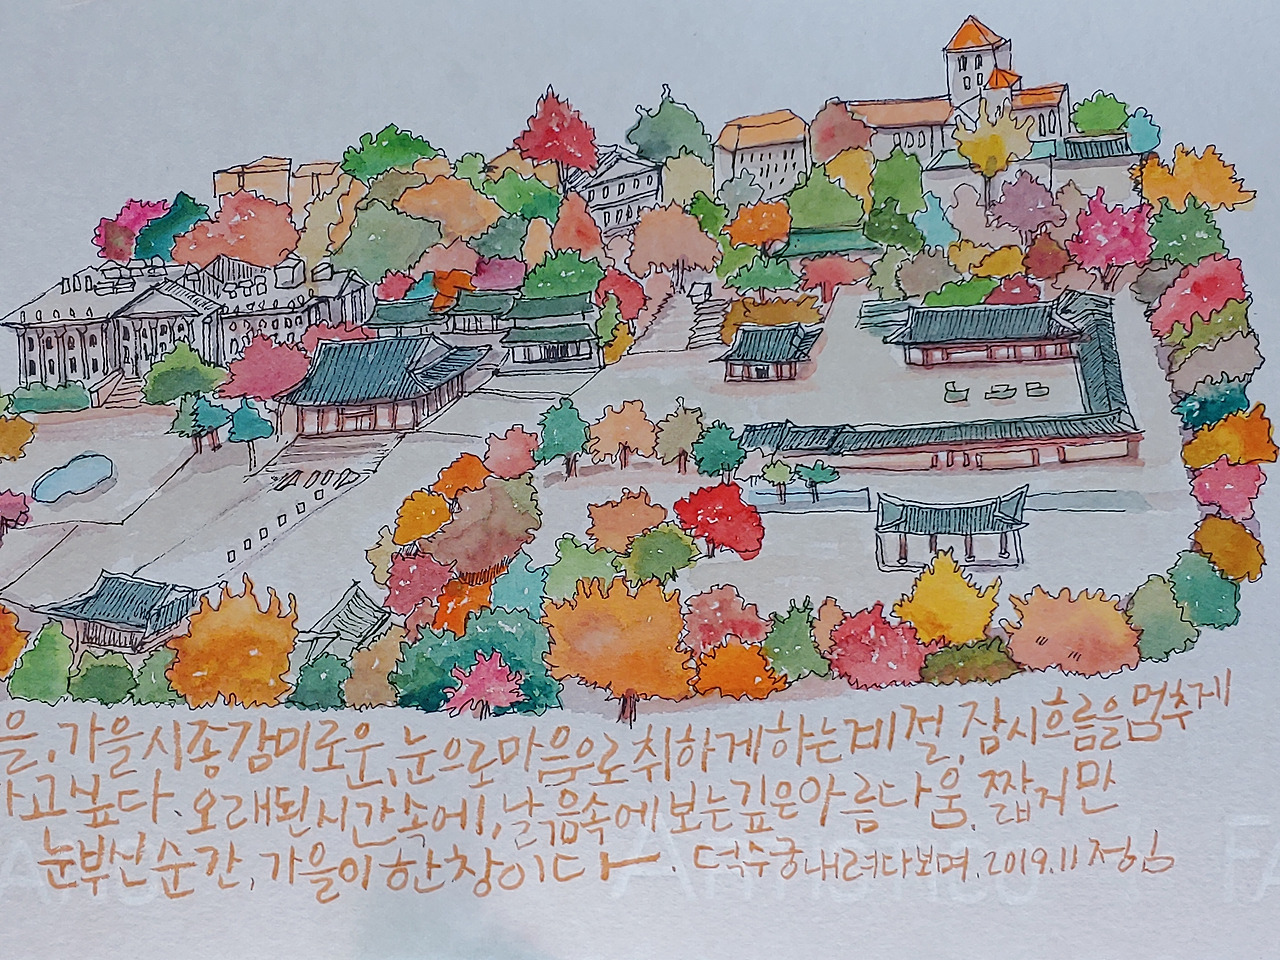 을, 가을 시종 감미로운, 눈으로 마음으로 취하게 하는 계절, 잠시 흐름을 멈추게
고 싶다. 오래된 시간 속에, 낡음 속에 보는 깊은 아름다움. 짧지만
눈부신 순간, 가을이 한창이다ㅡ. 덕수궁 내려다보며. 2019.11 정임